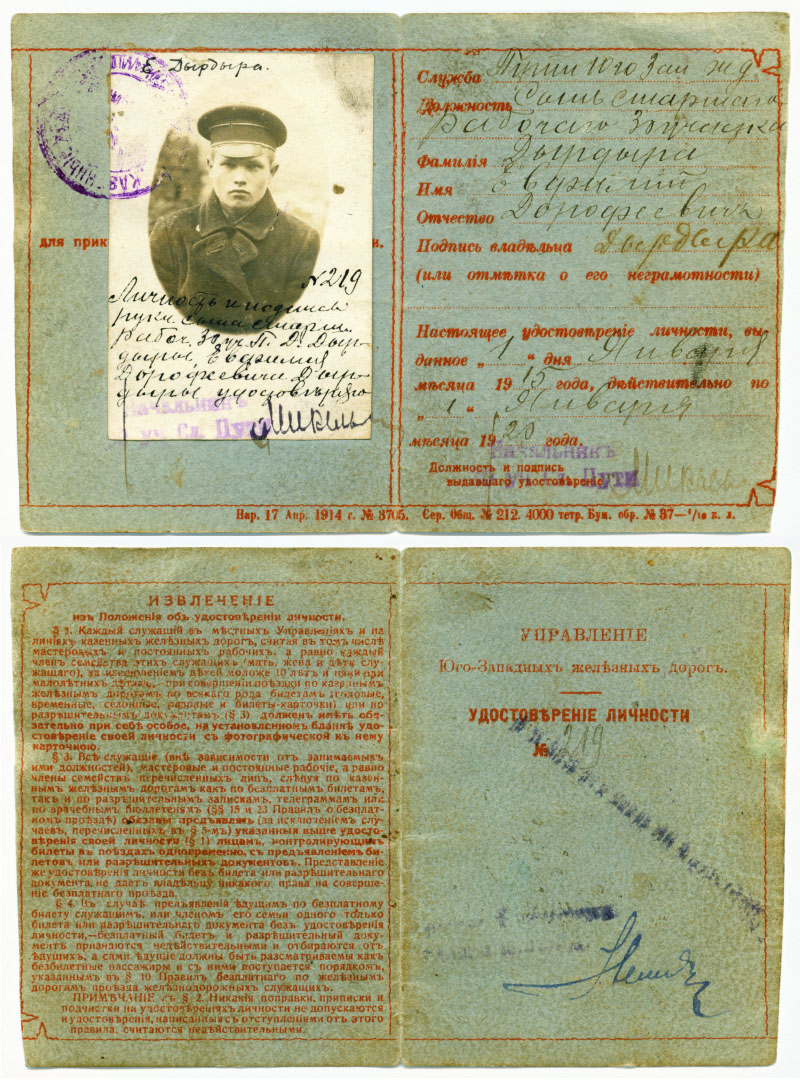 Е. Дырдыра.
КАЗЕННЫЕ
для прик
и.
№ 219
Личность и подпись
руки сына старш.
рабоч. 30 уч. П. Д. Дыр-
дыры, Евфимия
Дорофеевича Дыр-
дыры удостоверяю
Начальникъ
уч. Сл. Пути
Служба Пути Юго Зап ж д
Должность Сынъ старшаго
рабочаго 30 участка
Фамилія Дырдыра
Имя Евфимій
Отчество Дорофеевичъ
Подпись владѣльца Дырдыра
(или отмѣтка о его неграмотности)
Настоящее удостовѣреніе личности, вы-
данное „ 1 “ дня Января
мѣсяца 1915 года, дѣйствительно по
„ 1 “ Января
мѣсяца 1920 года.
Начальникъ
Должность и подпись
выдавшаго удостовѣреніе
уч. Сл. Пути
Нар. 17 Апр. 1914 г. № 3705. Сер. Общ. № 212. 4000 тетр. Бум. обр. № 37—¹/₁₆ в. л.
ИЗВЛЕЧЕНІЕ
изъ Положенія объ удостовѣреніи личности.
§ 1. Каждый служащій въ мѣстныхъ Управленіяхъ и на
линіяхъ казенныхъ желѣзныхъ дорогъ, считая въ томъ числѣ
мастеровыхъ и постоянныхъ рабочихъ, а равно каждый
членъ семейства этихъ служащихъ (мать, жена и дѣти слу-
жащаго), за исключеніемъ дѣтей моложе 10 лѣтъ и няни при
малолѣтнихъ дѣтяхъ,—при совершеніи поѣздки по казеннымъ
желѣзнымъ дорогамъ по всякаго рода билетамъ (годовые,
временные, сезонные, разовые и билеты-карточки) или по
разрѣшительнымъ документамъ (§ 3) долженъ имѣть обя-
зательно при себѣ особое, на установленномъ бланкѣ, удо-
стовѣреніе своей личности съ фотографической къ нему
карточкою.
§ 3. Всѣ служащіе (внѣ зависимости отъ занимаемыхъ
ими должностей), мастеровые и постоянные рабочіе, а равно
члены семействъ перечисленныхъ лицъ, слѣдуя по казен-
нымъ желѣзнымъ дорогамъ какъ по безплатнымъ билетамъ,
такъ и по разрѣшительнымъ запискамъ, телеграммамъ или
по врачебнымъ бюллетенямъ (§§ 15 и 23 Правилъ о безплат-
номъ проѣздѣ) обязаны предъявлять (за исключеніемъ слу-
чаевъ, перечисленныхъ въ § 5-мъ) указанныя выше удосто-
вѣренія своей личности (§ 1) лицамъ, контролирующимъ
билеты въ поѣздахъ одновременно, съ предъявленіемъ би-
летовъ, или разрѣшительныхъ документовъ. Представленіе
же удостовѣренія личности безъ билета или разрѣшительнаго
документа, не даетъ владѣльцу никакого права на соверше-
ніе безплатнаго проѣзда.
§ 4. Въ случаѣ предъявленія ѣдущимъ по безплатному
билету служащимъ, или членомъ его семьи одного только
билета или разрѣшительнаго документа безъ удостовѣренія
личности,—безплатный билетъ и разрѣшительный доку-
ментъ признаются недѣйствительными и отбираются отъ
ѣдущихъ, а сами ѣдущіе должны быть разсматриваемы какъ
безбилетные пассажиры и съ ними поступается порядкомъ,
указаннымъ въ § 10 Правилъ безплатнаго по желѣзнымъ
дорогамъ проѣзда желѣзнодорожныхъ служащихъ.
ПРИМѢЧАНІЕ къ § 2. Никакія поправки, приписки и
подчистки на удостовѣреніяхъ личности не допускаются
и удостовѣренія, написанныя съ отступленіями отъ этого
правила, считаются недѣйствительными.
УПРАВЛЕНІЕ
Юго-Западныхъ желѣзныхъ дорогъ.
УДОСТОВѢРЕНІЕ ЛИЧНОСТИ
№ 219